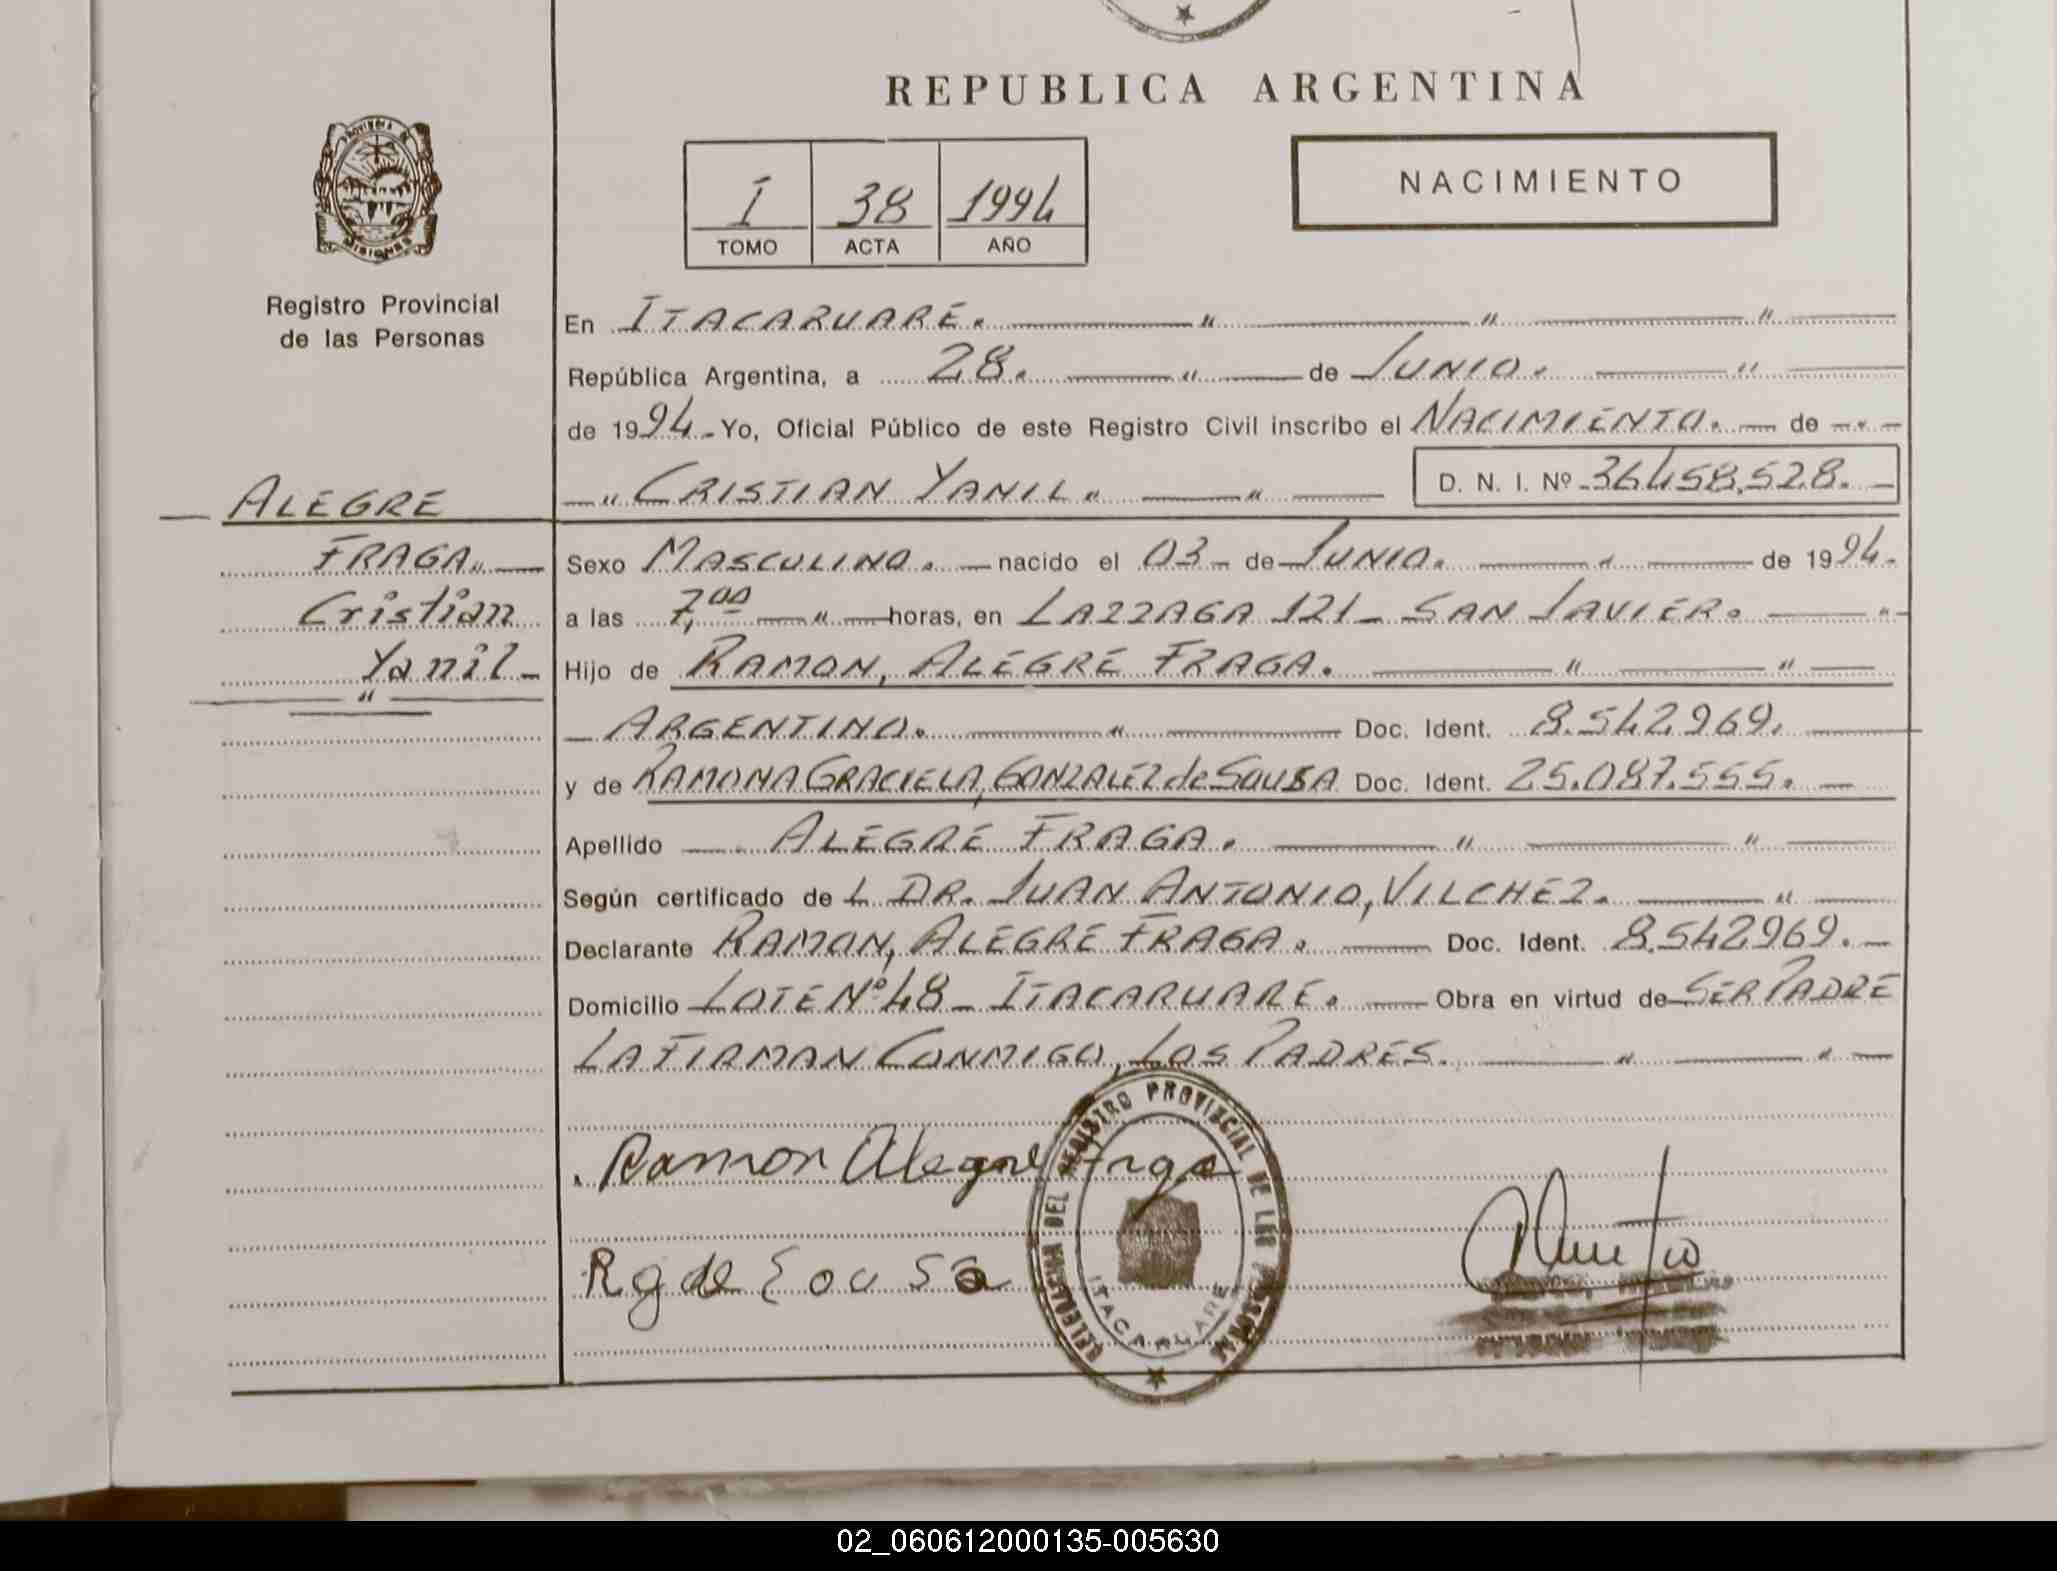 REPUBLICA ARGENTINA
PROVINCIA DE
MISIONES
Registro Provincial
de las Personas
I 38 1994
TOMO ACTA AÑO
NACIMIENTO
En ITACARUARÉ.
República Argentina, a 28. de JUNIO.
de 1994.- Yo, Oficial Público de este Registro Civil inscribo el NACIMIENTO. de
CRISTIAN YANIL D. N. I. Nº 36.458.528.
ALEGRE
FRAGA
Cristian
Yanil
Sexo MASCULINO. nacido el 03 de JUNIO. de 1994.
a las 7,00 horas, en LAZZAGA 121 - SAN JAVIER.
Hijo de RAMON, ALEGRE FRAGA.
ARGENTINO. Doc. Ident. 8.542969.
y de RAMONA GRACIELA, GONZALEZ de SOUSA Doc. Ident. 25.087.555.
Apellido ALEGRE FRAGA.
Según certificado de L DR. JUAN ANTONIO, VILCHEZ.
Declarante RAMON, ALEGRE FRAGA. Doc. Ident. 8.542969.
Domicilio LOTE Nº 48 - ITACARUARE. Obra en virtud de SER PADRE
LA FIRMAN CONMIGO, LOS PADRES.
Ramon Alegre Frga
Rg de Sousa
DELEGACION DEL REGISTRO PROVINCIAL DE LAS PERSONAS
ITACARUARE
02_060612000135-005630